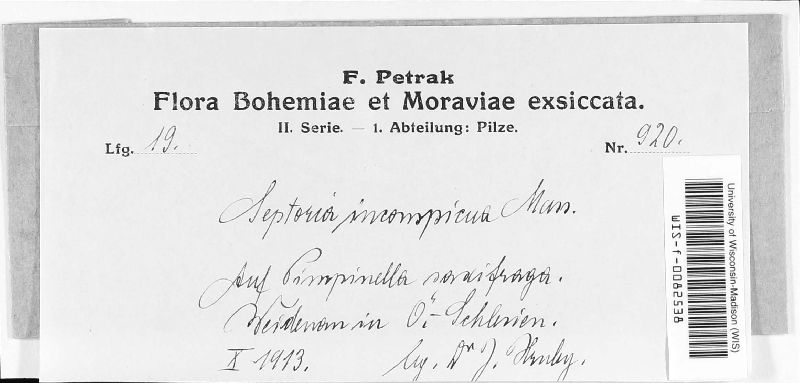 F. Petrak
Flora Bohemiae et Moraviae exsiccata.
II. Serie. — 1. Abteilung: Pilze.
Lfg. 19.
Nr. 920.
Septoria inconspicua Mass.
Auf Pimpinella saxifraga.
Weidenau in Ö.-Schlesien.
X 1913. leg. Dr J. Hruby.
University of Wisconsin-Madison (WIS)
WIS-f-0082538